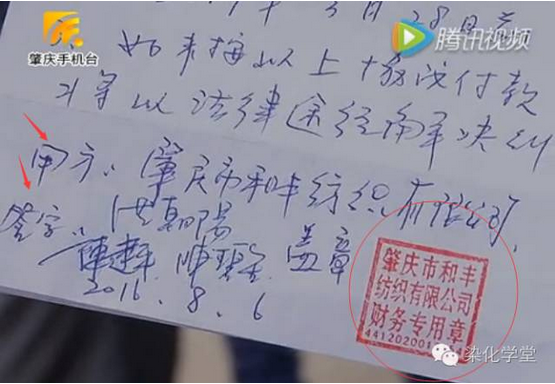 肇庆手机台
腾讯视频
如未按以上协议付款
将以法律途径解决
甲方:肇庆市和丰纺织有限公司
签字: 洪朝阳
盖章
2016.8.6
肇庆市和丰
纺织有限公司
财务专用章
441202001
染化学堂